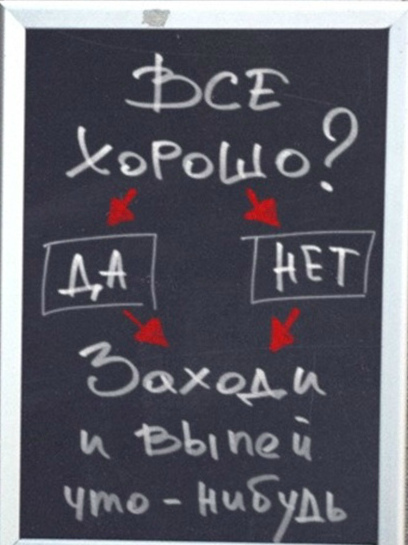 ВСЕ
ХОРОШО?
ДА НЕТ
Заходи
и выпей
что-нибудь